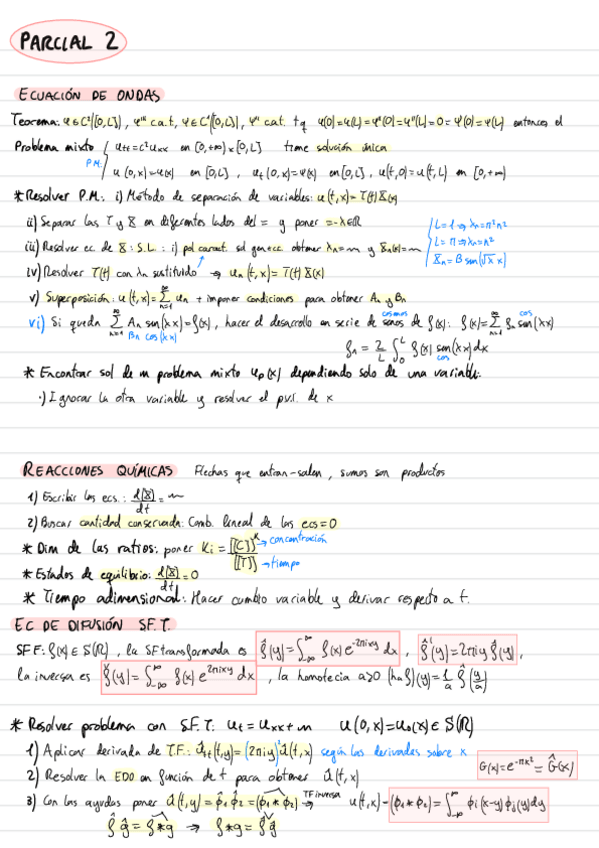 PARCIAL 2
ECUACIÓN DE ONDAS
Teorema: φ∈C²([0,L]), φ''' c.a.t, ψ∈C¹([0,L]), ψ'' c.a.t. tq φ(0)=φ(L)=φ''(0)=φ''(L)=0=ψ(0)=ψ(L) entonces el
Problema mixto { u_tt=c²u_xx en [0,+∞)×[0,L] tiene solución única
P.M. u(0,x)=φ(x) en [0,L], u_t(0,x)=ψ(x) en [0,L], u(t,0)=u(t,L) en [0,+∞)
* Resolver P.M.: i) Método de separación de variables: u(t,x)=T(t)X(x)
ii) Separar las T y X en diferentes lados del = y poner =-λ∈ℝ
iii) Resolver ec de X: S.L.: i) pol caract. sol gen+cc. obtener λn=~ y Xn(x)=~
L=1→λn=π²n²
L=π→λn=n²
Xn=B sen(√λ x)
iv) Resolver T(t) con λn sustituido → un(t,x)=T(t)X(x)
v) Superposición: u(t,x)=∑_{n=1}^∞ un + imponer condiciones para obtener An y Bn
vi) Si queda ∑_{n=1}^∞ An sen(λx)=f(x), hacer el desarrollo en serie de senos de f(x): f(x)=∑_{n=1}^∞ fn sen(λx)
Bn cos(λx) cosenos cos
fn = 2/L ∫_0^L f(x) sen(λx)dx
cos
* Encontrar sol de un problema mixto up(x) dependiendo solo de una variable:
·) Ignorar la otra variable y resolver el p.v.i. de x
REACCIONES QUÍMICAS Flechas que entran-salen, sumas son productos
1) Escribir las ecs.: d[X]/dt = ~
2) Buscar cantidad conservada: Comb. lineal de las ecs=0
* Dim de las ratios: poner Ki = [[C]]^k/[[T]] → concentración → tiempo
* Estados de equilibrio: d[X]/dt = 0
* Tiempo adimensional: Hacer cambio variable y derivar respecto a t.
EC DE DIFUSIÓN S.F.T.
SFF: f(x)∈S(ℝ), la SF transformada es f̂(y)=∫_{-∞}^∞ f(x)e^{-2πixy}dx, f̂'(y)=2πiy f̂(y),
la inversa es f̌(y)=∫_{-∞}^∞ f(x)e^{2πixy}dx, la homotecia a>0 (ha f)(y)=1/a f̂(y/a)
* Resolver problema con S.F.T.: u_t=u_xx+~ u(0,x)=u₀(x)∈S(ℝ)
1) Aplicar derivada de T.F.: û_t(t,y)=(2πiy)²û(t,x) según las derivadas sobre x
2) Resolver la EDO en función de t para obtener û(t,x)
G(x)=e^{-πx²}=Ĝ(x)
3) Con las ayudas poner û(t,y)=φ̂₁φ̂₂=(φ₁*φ₂)^ →TF inversa u(t,x)=(φ₁*φ₂)=∫_{-∞}^∞ φi(x-y)φj(y)dy
f̂ĝ=f*g → f*g=f̂ĝ